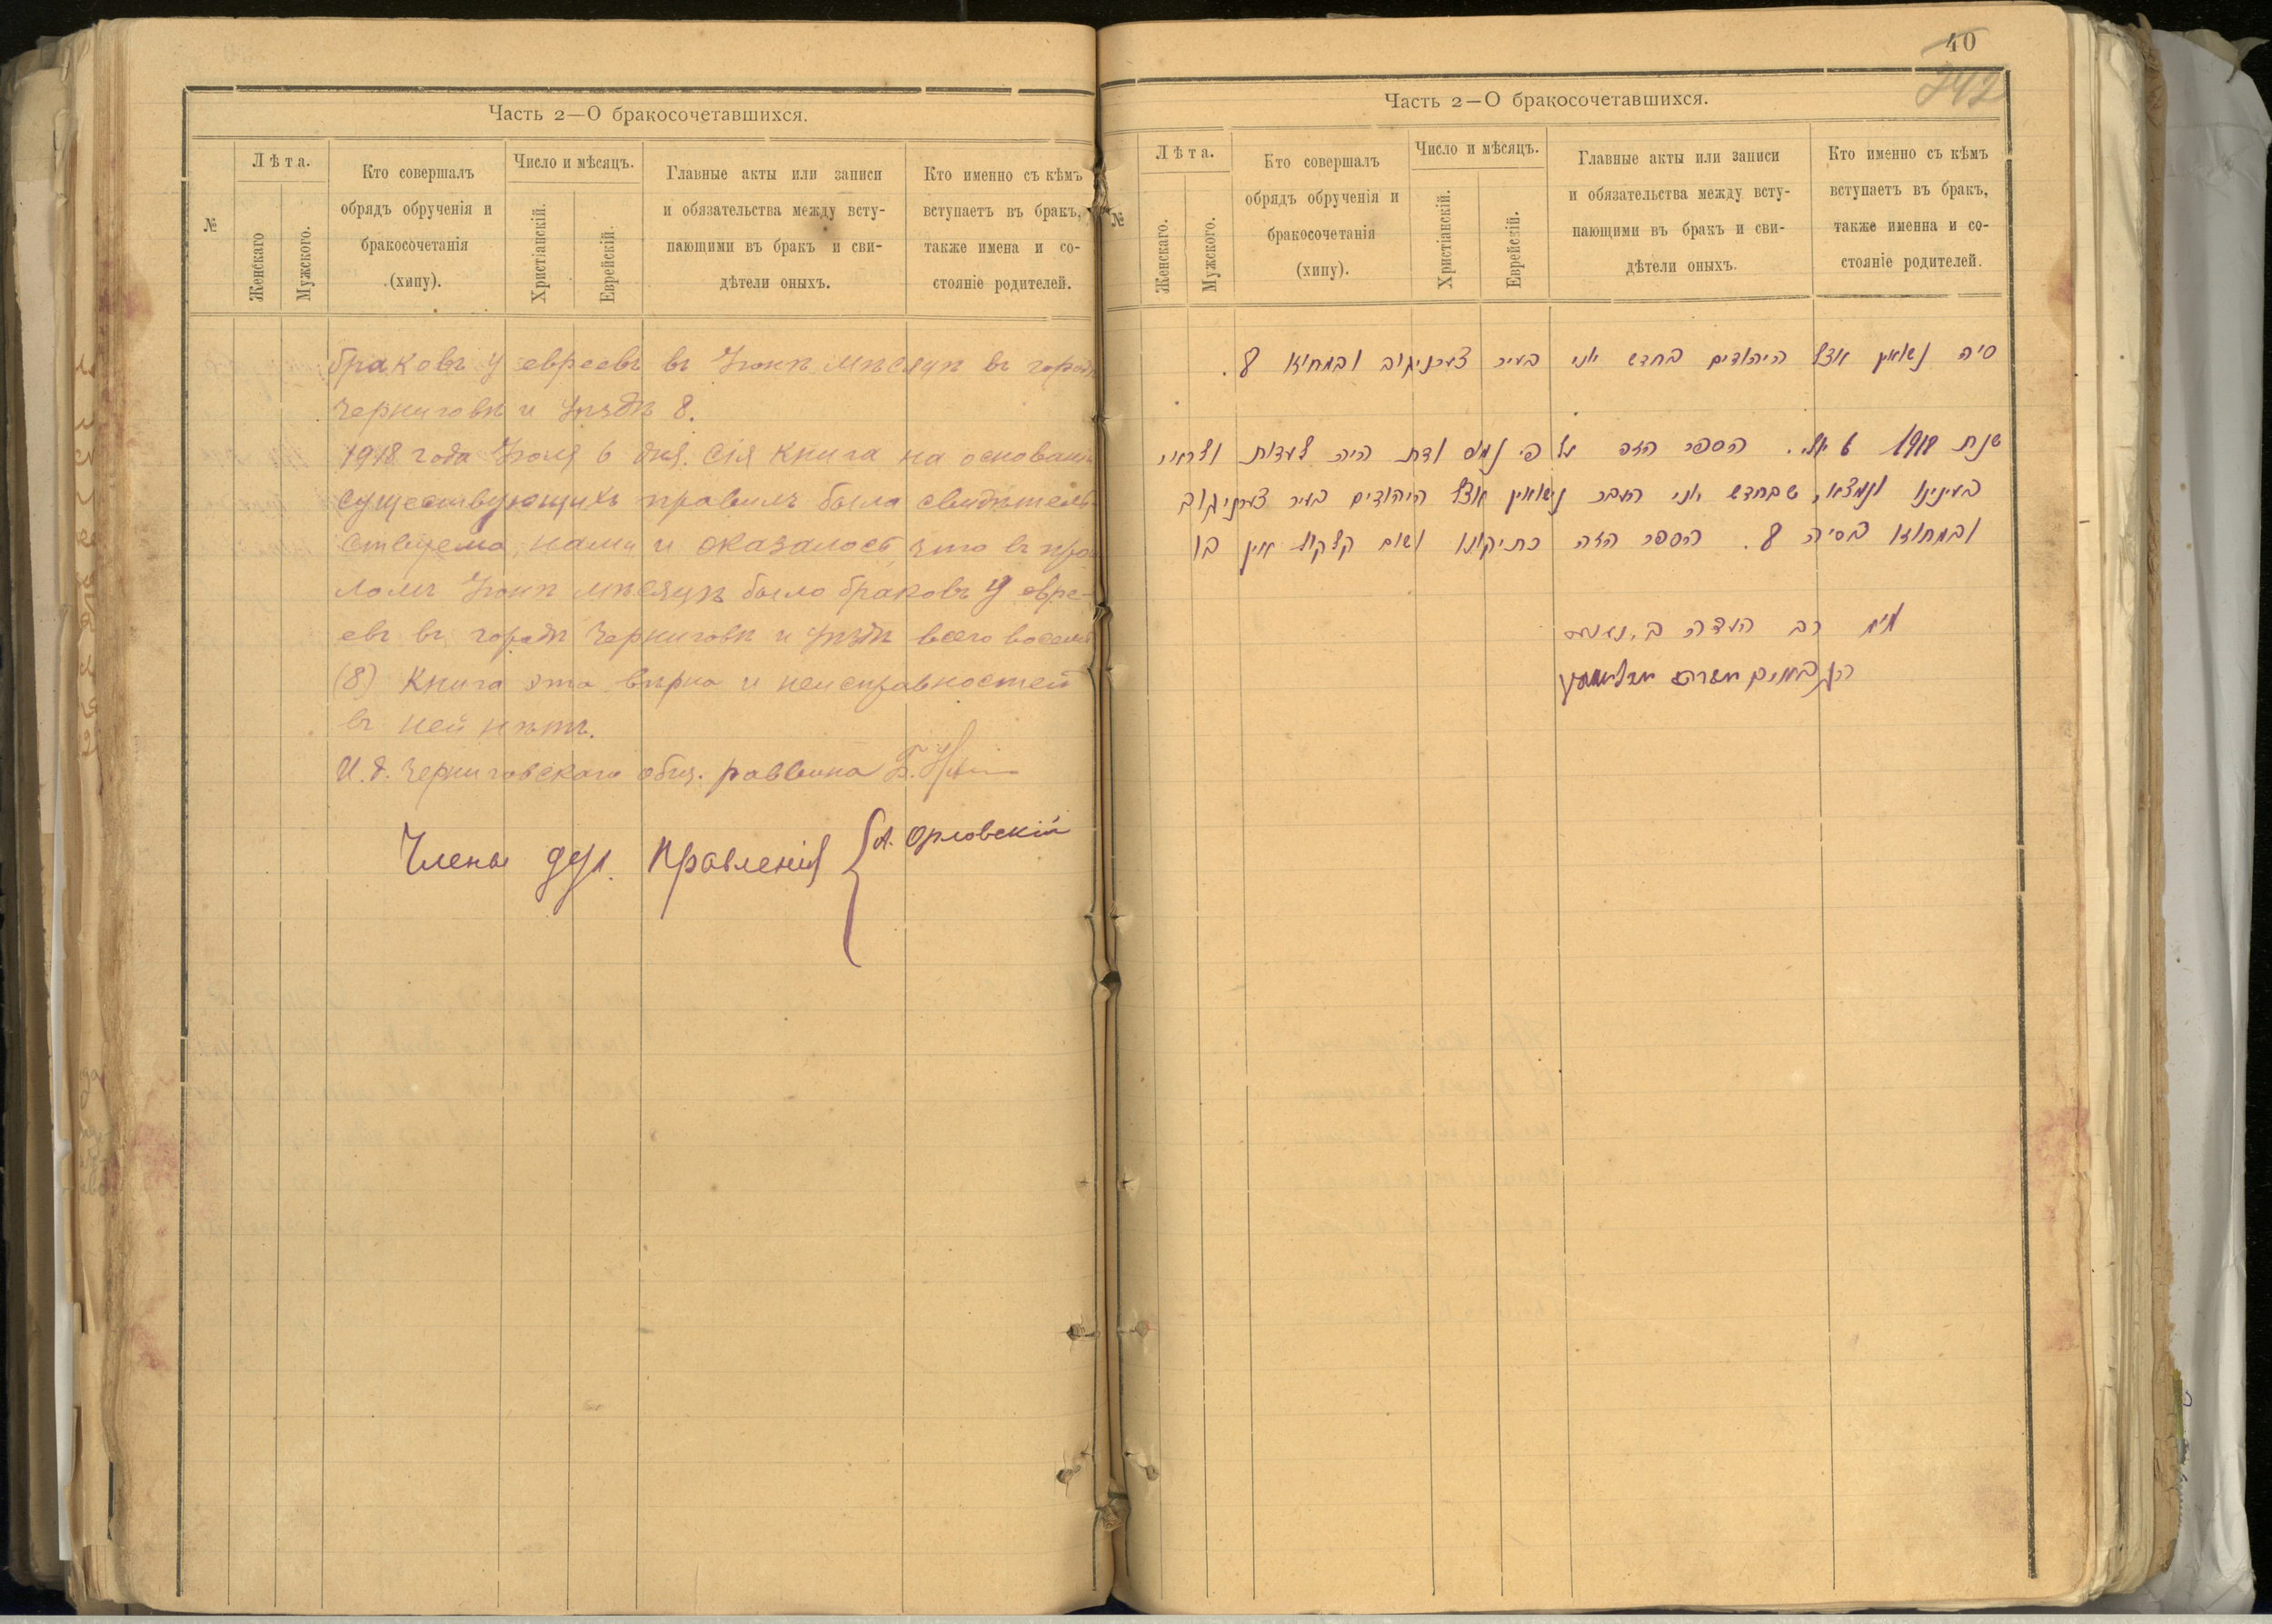 Часть 2—О бракосочетавшихся.
№
Лѣта.
Женскаго
Мужского.
Кто совершалъ
обрядъ обрученія и
бракосочетанія
(хипу).
Число и мѣсяцъ.
Христіанскій.
Еврейскій.
Главные акты или записи
и обязательства между всту-
пающими въ бракъ и сви-
дѣтели оныхъ.
Кто именно съ кѣмъ
вступаетъ въ бракъ,
также имена и со-
стояніе родителей.
браковъ у евреевъ въ Іюнѣ мѣсяцѣ въ городѣ
Черниговѣ и уѣздѣ 8.
1918 года Іюля 6 дня. Сія книга на основаніи
существующихъ правилъ была свидѣтель-
ствуема нами и оказалось, что въ прош-
ломъ Іюнѣ мѣсяцѣ было браковъ у евре-
евъ въ городѣ Черниговѣ и уѣздѣ всего восемь
(8) Книга эта вѣрна и неисправностей
въ ней нѣтъ.
И. д. Черниговскаго общ. раввина Б.
Члены дух. Правленія { А. Орловскій
40
242
Часть 2—О бракосочетавшихся.
№
Лѣта.
Женскаго.
Мужского.
Кто совершалъ
обрядъ обрученія и
бракосочетанія
(хипу).
Число и мѣсяцъ.
Христіанскій.
Еврейскій.
Главные акты или записи
и обязательства между всту-
пающими въ бракъ и сви-
дѣтели оныхъ.
Кто именно съ кѣмъ
вступаетъ въ бракъ,
также именна и со-
стояніе родителей.
ס״ה נשואין אצל היהודים בחדש יוני בעיר צערניגוב ובמחוזו 8.
שנת 1918 6 יולי. הספר הזה על פי נמוס ודת היה לעדות ולראיה
בעינינו ונמצא, שבחדש יוני העבר נישואין אצל היהודים בעיר צערניגוב
ובמחוזו בס״ה 8. הספר הזה כתיקונו ושום קלקול אין בו
רב העדה ב.